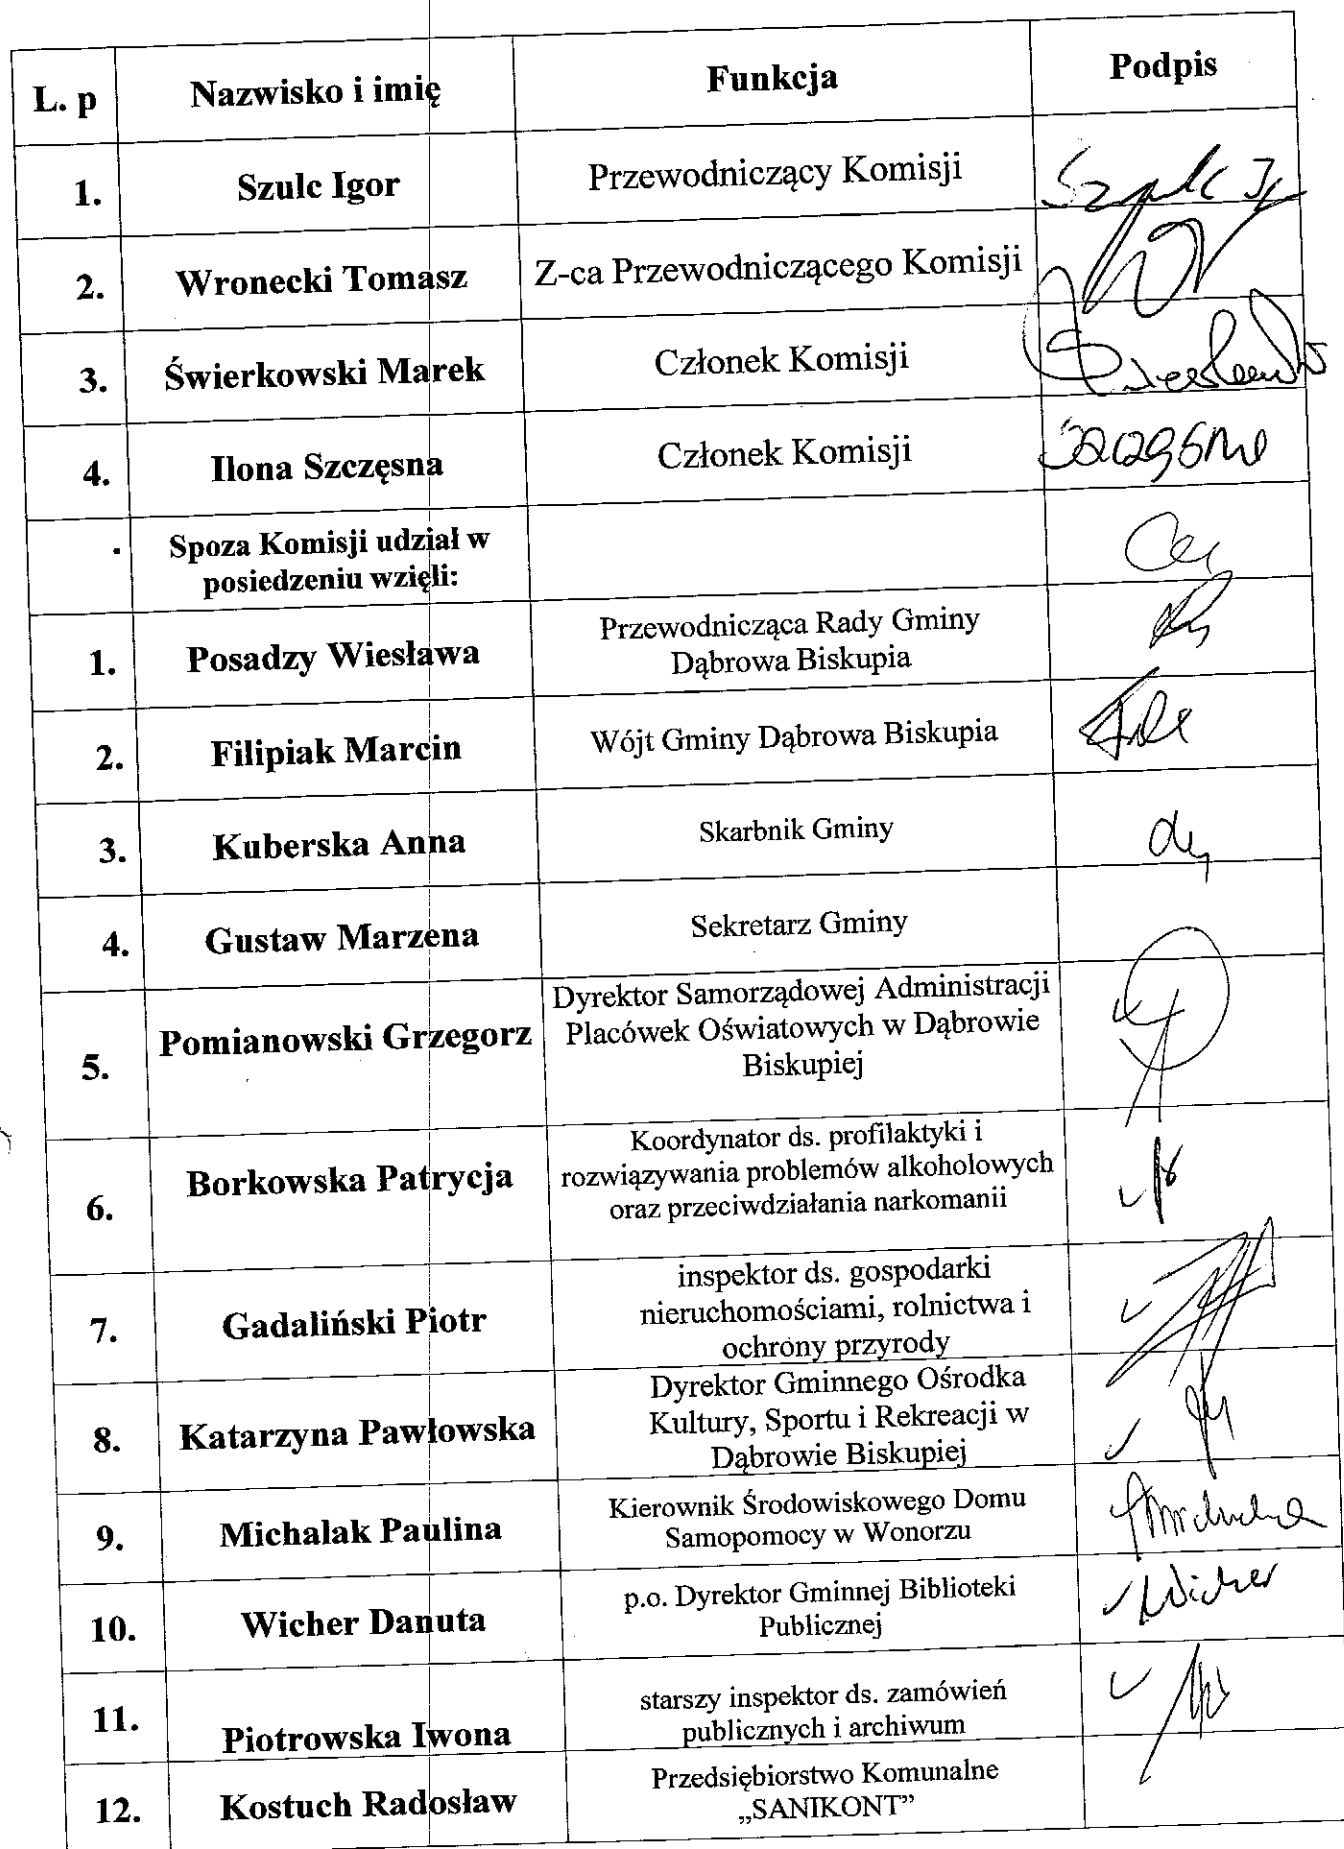 L. p Nazwisko i imię Funkcja Podpis
1. Szulc Igor Przewodniczący Komisji Szulc Ig
2. Wronecki Tomasz Z-ca Przewodniczącego Komisji
3. Świerkowski Marek Członek Komisji Świerkowski
4. Ilona Szczęsna Członek Komisji Szczęsna
. Spoza Komisji udział w
posiedzeniu wzięli:
1. Posadzy Wiesława Przewodnicząca Rady Gminy
Dąbrowa Biskupia
2. Filipiak Marcin Wójt Gminy Dąbrowa Biskupia
3. Kuberska Anna Skarbnik Gminy
4. Gustaw Marzena Sekretarz Gminy
5. Pomianowski Grzegorz Dyrektor Samorządowej Administracji
Placówek Oświatowych w Dąbrowie
Biskupiej
6. Borkowska Patrycja Koordynator ds. profilaktyki i
rozwiązywania problemów alkoholowych
oraz przeciwdziałania narkomanii
7. Gadaliński Piotr inspektor ds. gospodarki
nieruchomościami, rolnictwa i
ochrony przyrody
8. Katarzyna Pawłowska Dyrektor Gminnego Ośrodka
Kultury, Sportu i Rekreacji w
Dąbrowie Biskupiej
9. Michalak Paulina Kierownik Środowiskowego Domu
Samopomocy w Wonorzu
10. Wicher Danuta p.o. Dyrektor Gminnej Biblioteki
Publicznej Wicher
11. Piotrowska Iwona starszy inspektor ds. zamówień
publicznych i archiwum
12. Kostuch Radosław Przedsiębiorstwo Komunalne
„SANIKONT”